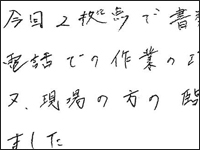 今回2拠点で書
電話での作業の
又、現場の方の臨
ました